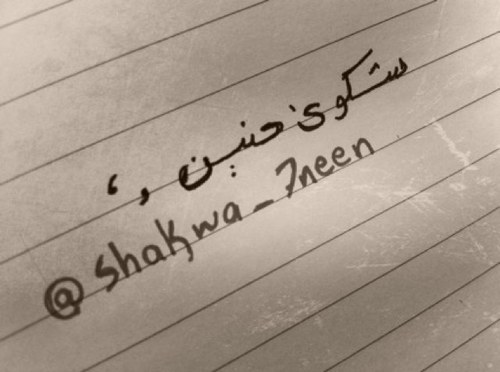 شكوى حنين , ،
@shakwa_7neen